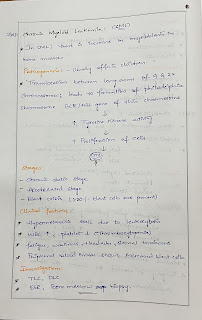 Chronic Myeloid Leukemia (CML)
* In CML, there is increase in myeloblasts in
bone marrow
Pathogenesis - Usually affects children
* Translocation between long arms of 9 & 22
chromosomes, leads to formation of philadelphia
chromosome BCR/ABL gene of this chromosome
↓
↑ Tyrosine kinase activity
↓
↑ Proliferation of cells
↓
CML
Stages
- Chronic stable stage
- Accelerated stage
- Blast crisis (≥20% blast cells are present)
Clinical features
* Hypermetabolic state due to leukocytosis
* WBC ↑, platelet ↓ (Thrombocytopenia)
* fatigue, weakness,
* Peripheral blood smear shows blast cells
Investigation
* TLC, DLC
* ESR, Bone marrow biopsy.